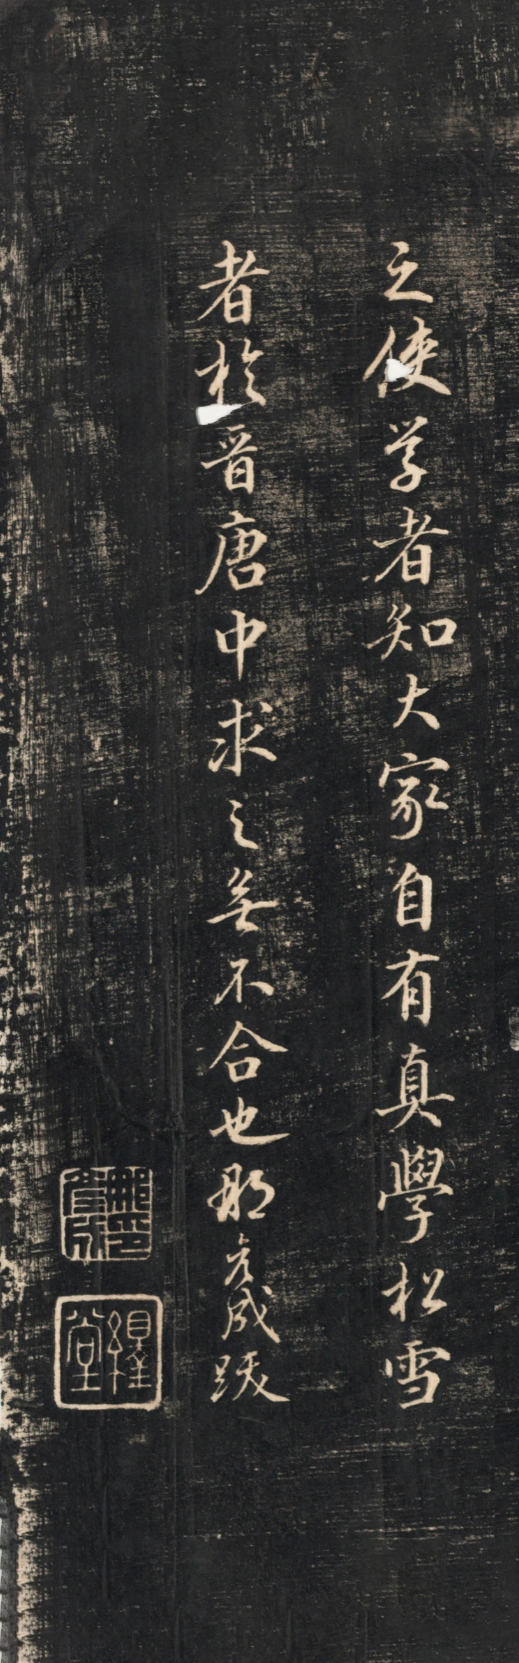 之使学者知大家自有真學松雪
者於晉唐中求之無不合也那彥成跋